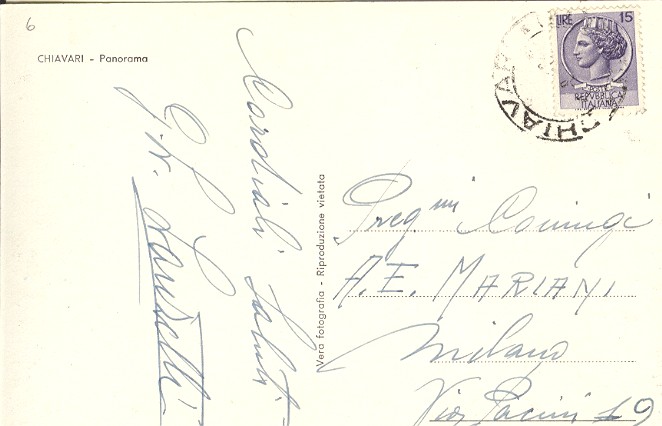 6
CHIAVARI - Panorama
Cordiali Saluti
Vera fotografia - Riproduzione vietata
LIRE 15
REPVBBLICA
ITALIANA
CHIAVARI
Preg.mi Coniugi
A. E. MARIANI
Milano
Via Pacini 19